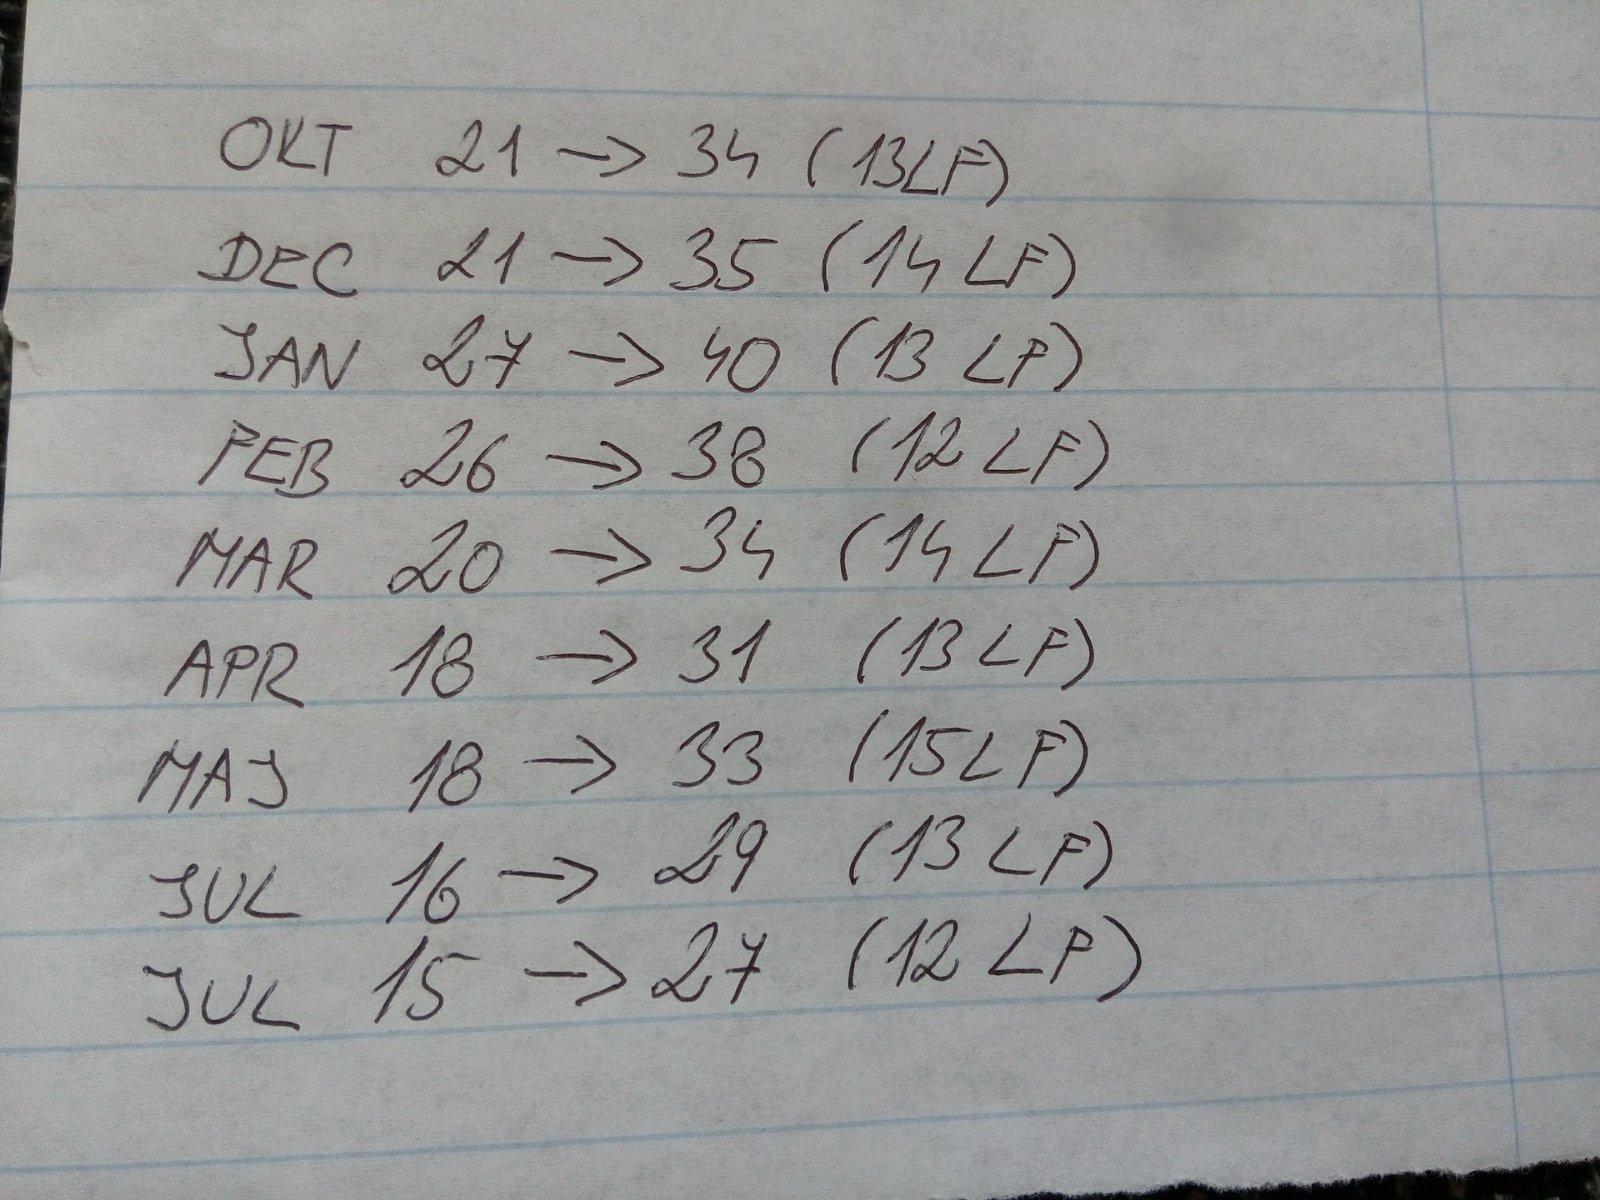 OKT 21 → 34 (13LF)
DEC 21 → 35 (14 LF)
JAN 27 → 40 (13 LF)
FEB 26 → 38 (12 LF)
MAR 20 → 34 (14 LF)
APR 18 → 31 (13 LF)
MAJ 18 → 33 (15 LF)
JUL 16 → 29 (13 LF)
JUL 15 → 27 (12 LF)